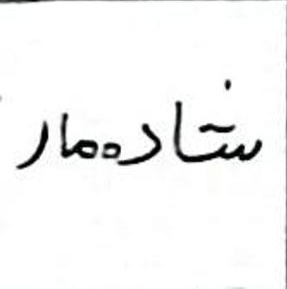 شادهمار